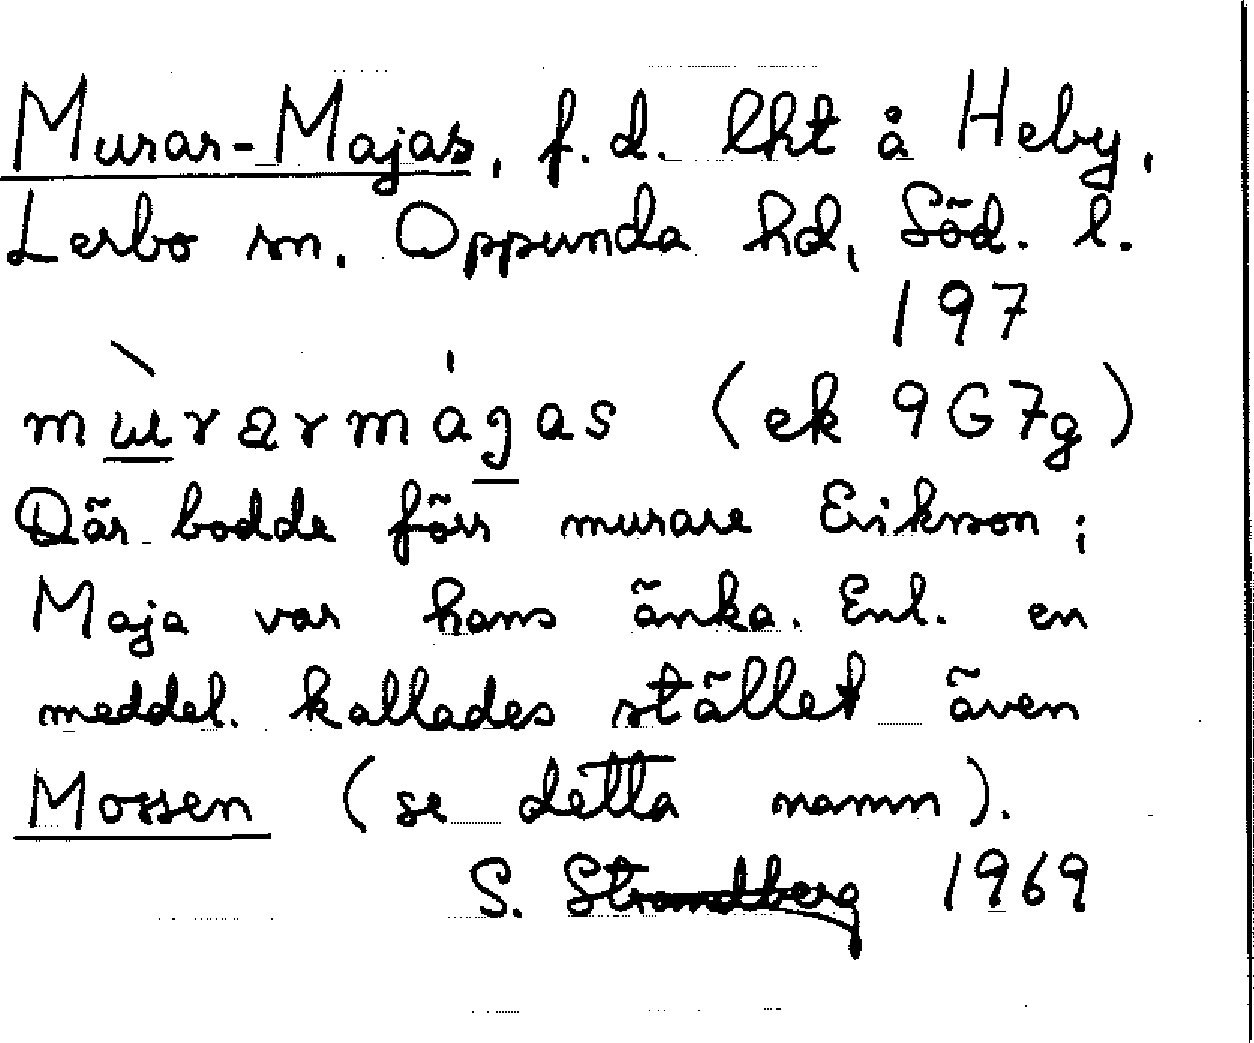 Murar-Majas, f.d. lht å Heby,
Lerbo sn, Oppunda hd, Söd. l.
197
mu̲rarmaj̲as (ek 9G7g)
Där bodde förr murare Erikson;
Maja var hans änka. Enl. en
meddel. kallades stället även
Mossen (se detta namn).
S. Strandberg 1969